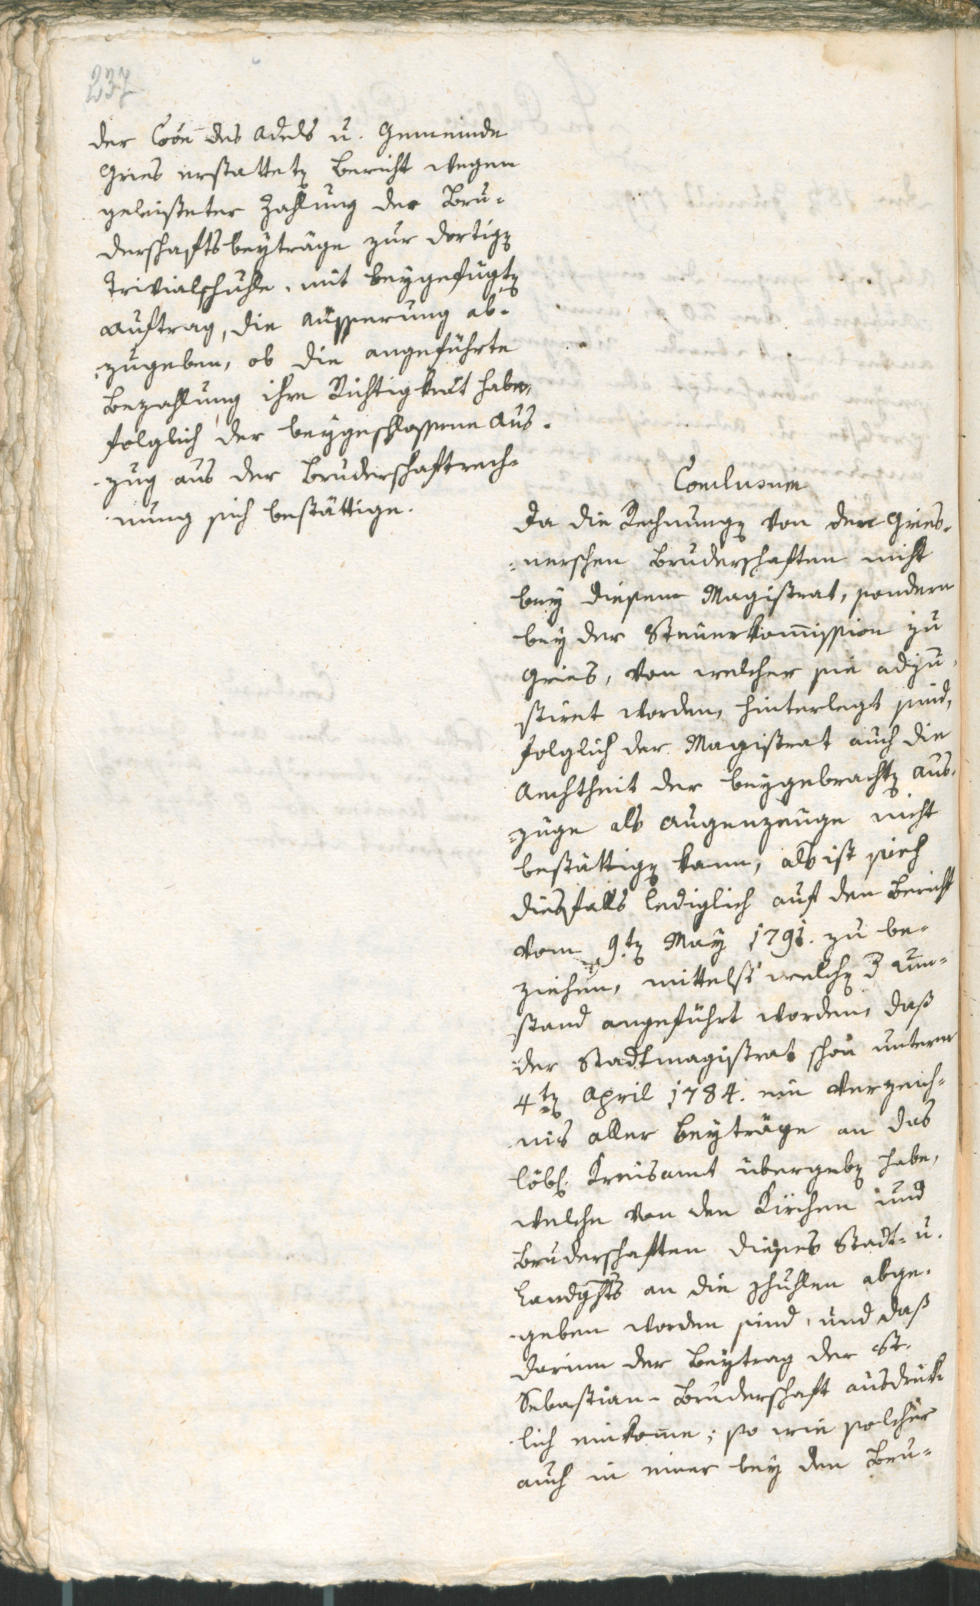 237
der Coõn des Adels u. Gemeinde
Gries erstatteten Bericht wegen
geleisteter Zahlung der Bru-
derschaftsbeyträge zur dortigen
Trivialschule, mit beygefügten
Auftrag, die Äusserung ab-
zugeben, ob die angeführte
Bezahlung ihre Richtigkeit habe,
folglich der beygeschlossene Aus-
zug aus der Bruderschaftrech-
nung sich bestättige.
Conclusum
Da die Rechnungen von den Gries-
nerschen Bruderschaften nicht
bey diesem Magistrat, sondern
bey der Steuerkom̄ission zu
Gries, von welcher sie adju-
stiret worden, hinterlegt sind,
folglich der Magistrat auch die
Aechtheit der beygebrachten Aus-
züge als Augenzeuge nicht
bestättigen kann, als ist sich
diesfalls lediglich auf den Bericht
vom 9.ten May 1791. zu be-
ziehen, mittelst welchen d Um-
stand angeführt worden, daß
der Stadtmagistrat schon unterm
4ten April 1784. ein Verzeich-
nis aller Beyträge an das
löbl. Kreisamt übergeben habe,
welche von den Kirchen und
Bruderschaften dieses Stadt- u.
Landghts an die Schulen abge-
geben worden sind, und daß
darinn der Beytrag der St.
Sebastian-Bruderschaft ausdrük-
lich einkom̄e; so wie solcher
auch in einer bey den Bru-